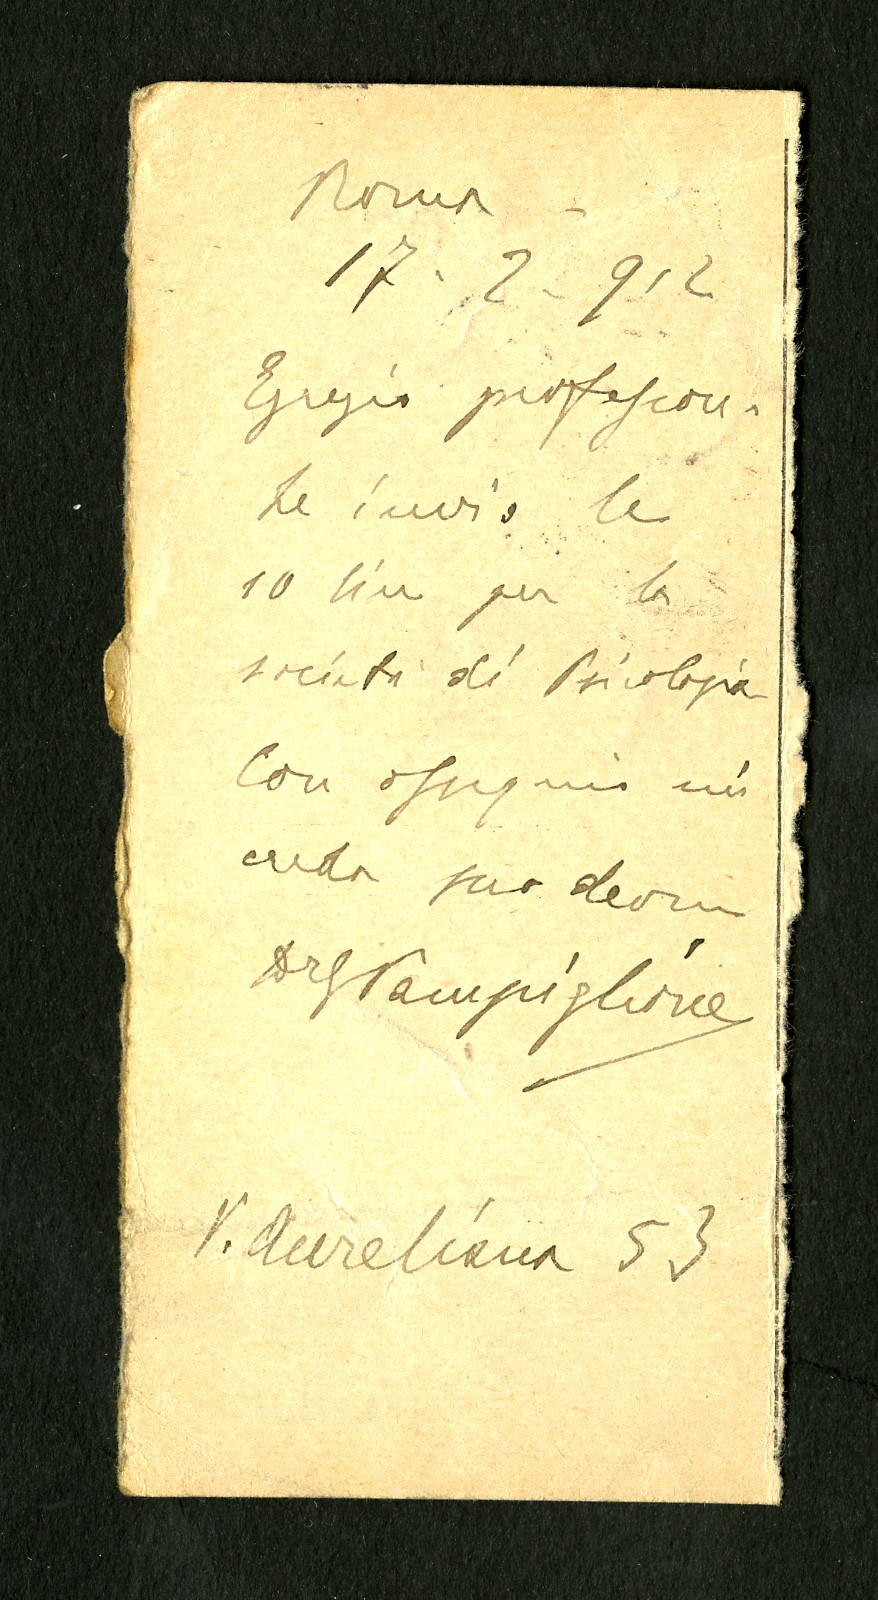 Roma -
17 - 2 - 912
Egregio professore
Le invio le
10 lire per la
società di Psicologia
Con ossequio mi
creda suo devmo
Dr G Pampiglione
V. Aureliana 53